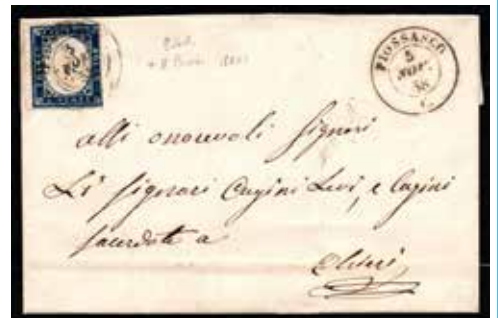 PIOSSASCO
5
NOV.
58
alli onorevoli Signori
Li Signori Cugini Levi, e Cugini
Sacerdote a
Chieri